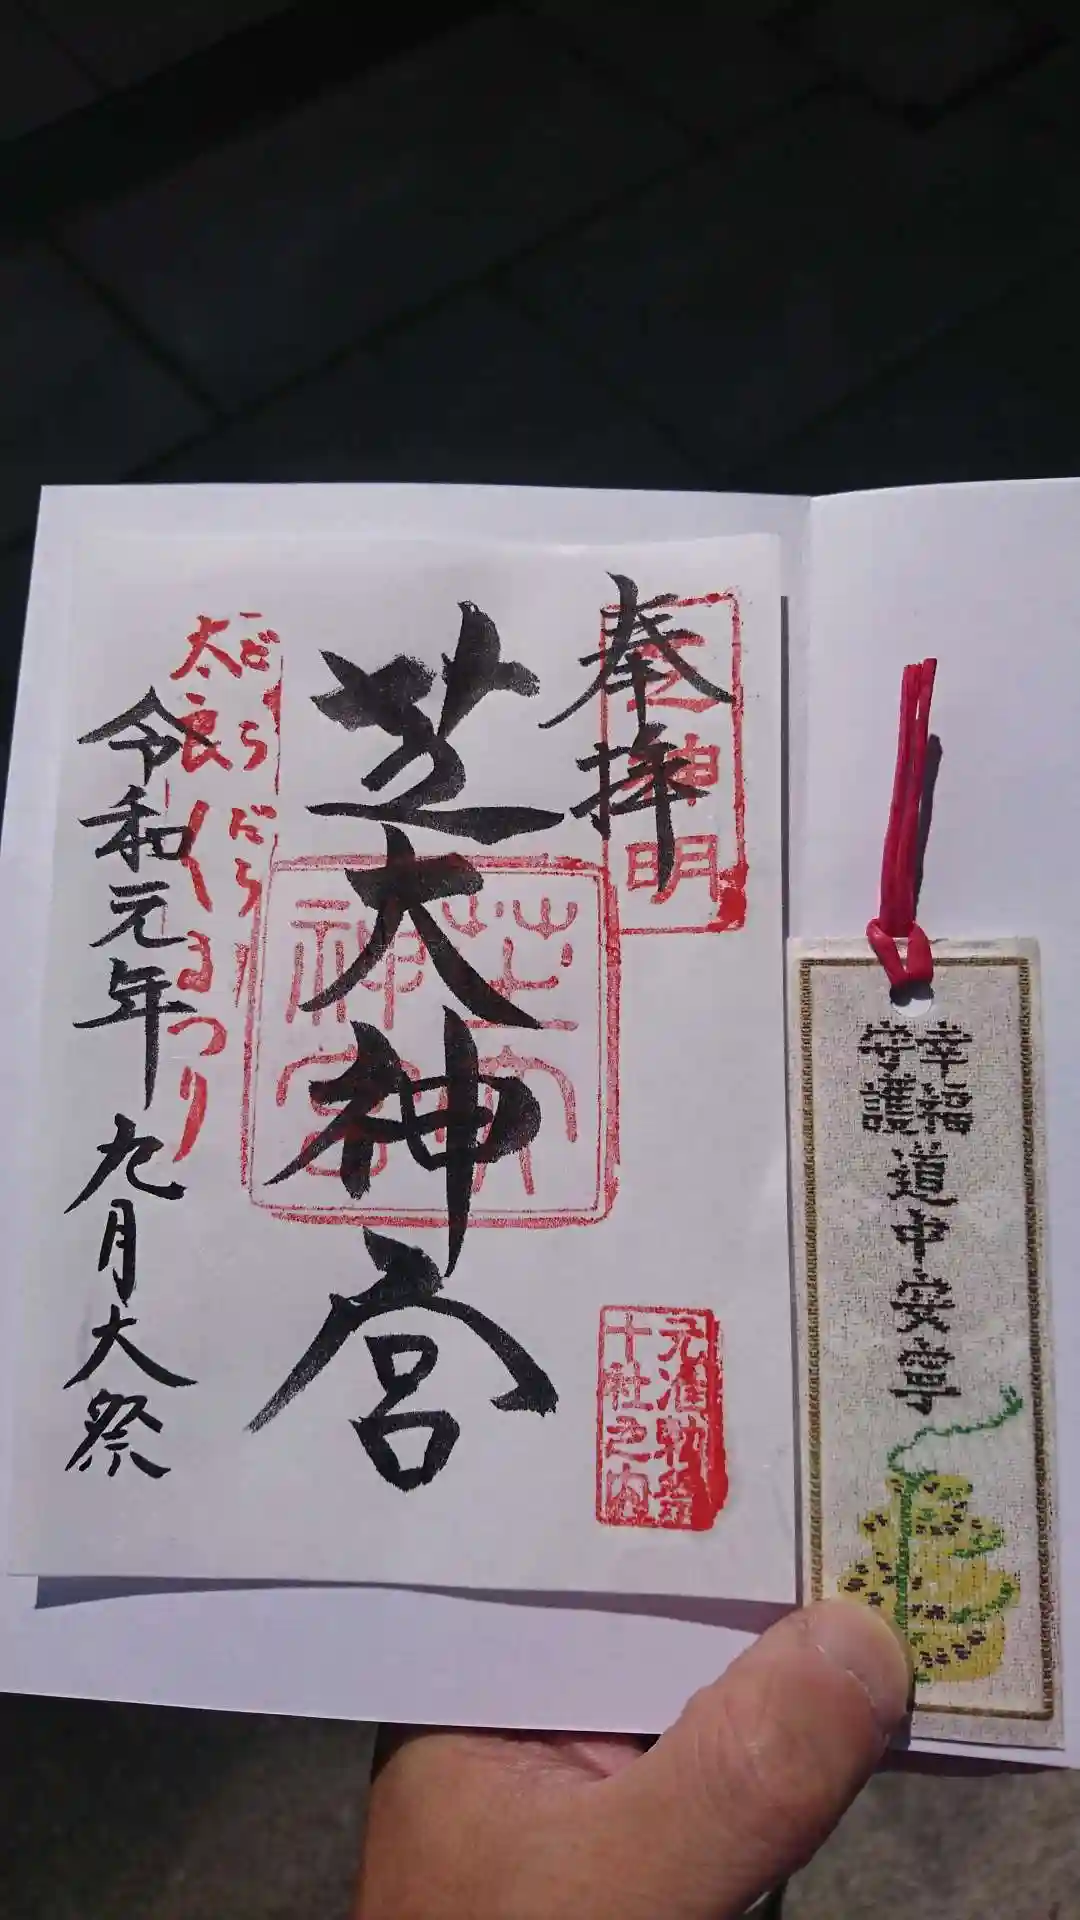 奉拝
芝神明
芝大神宮
芝大神宮
元准勅祭
十社之内
だらだら
太良くまつり
令和元年九月大祭
幸福
守護
道中安全